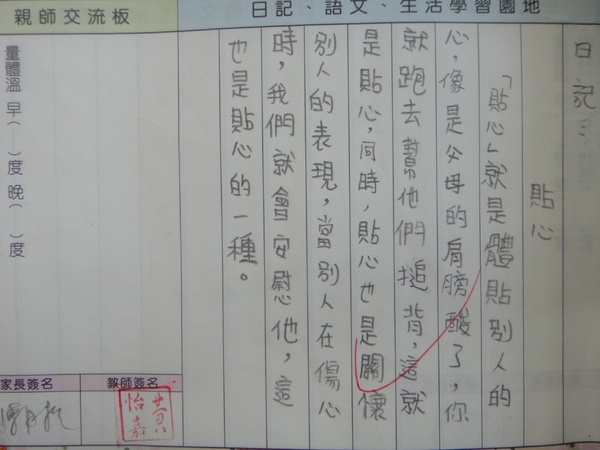 日記、語文、生活學習園地
日記：
貼心
「貼心」就是體貼別人的
心，像是父母的肩膀酸了，你
就跑去幫他們搥背，這就
是貼心，同時，貼心也是關懷
別人的表現，當別人在傷心
時，我們就會安慰他，這
也是貼心的一種。
親師交流板
量體溫 早（　）度 晚（　）度
家長簽名
教師簽名
黃怡嘉